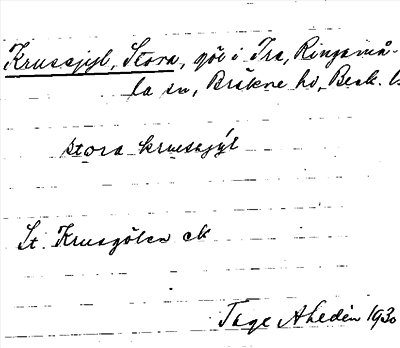 Krussjyl, Stora, göl i Tra, Ringamå-
la sn, Bräkne hd, Blek. l.
stora krussjyl
St. Krusgölen ek
Tage Ahledén 1930